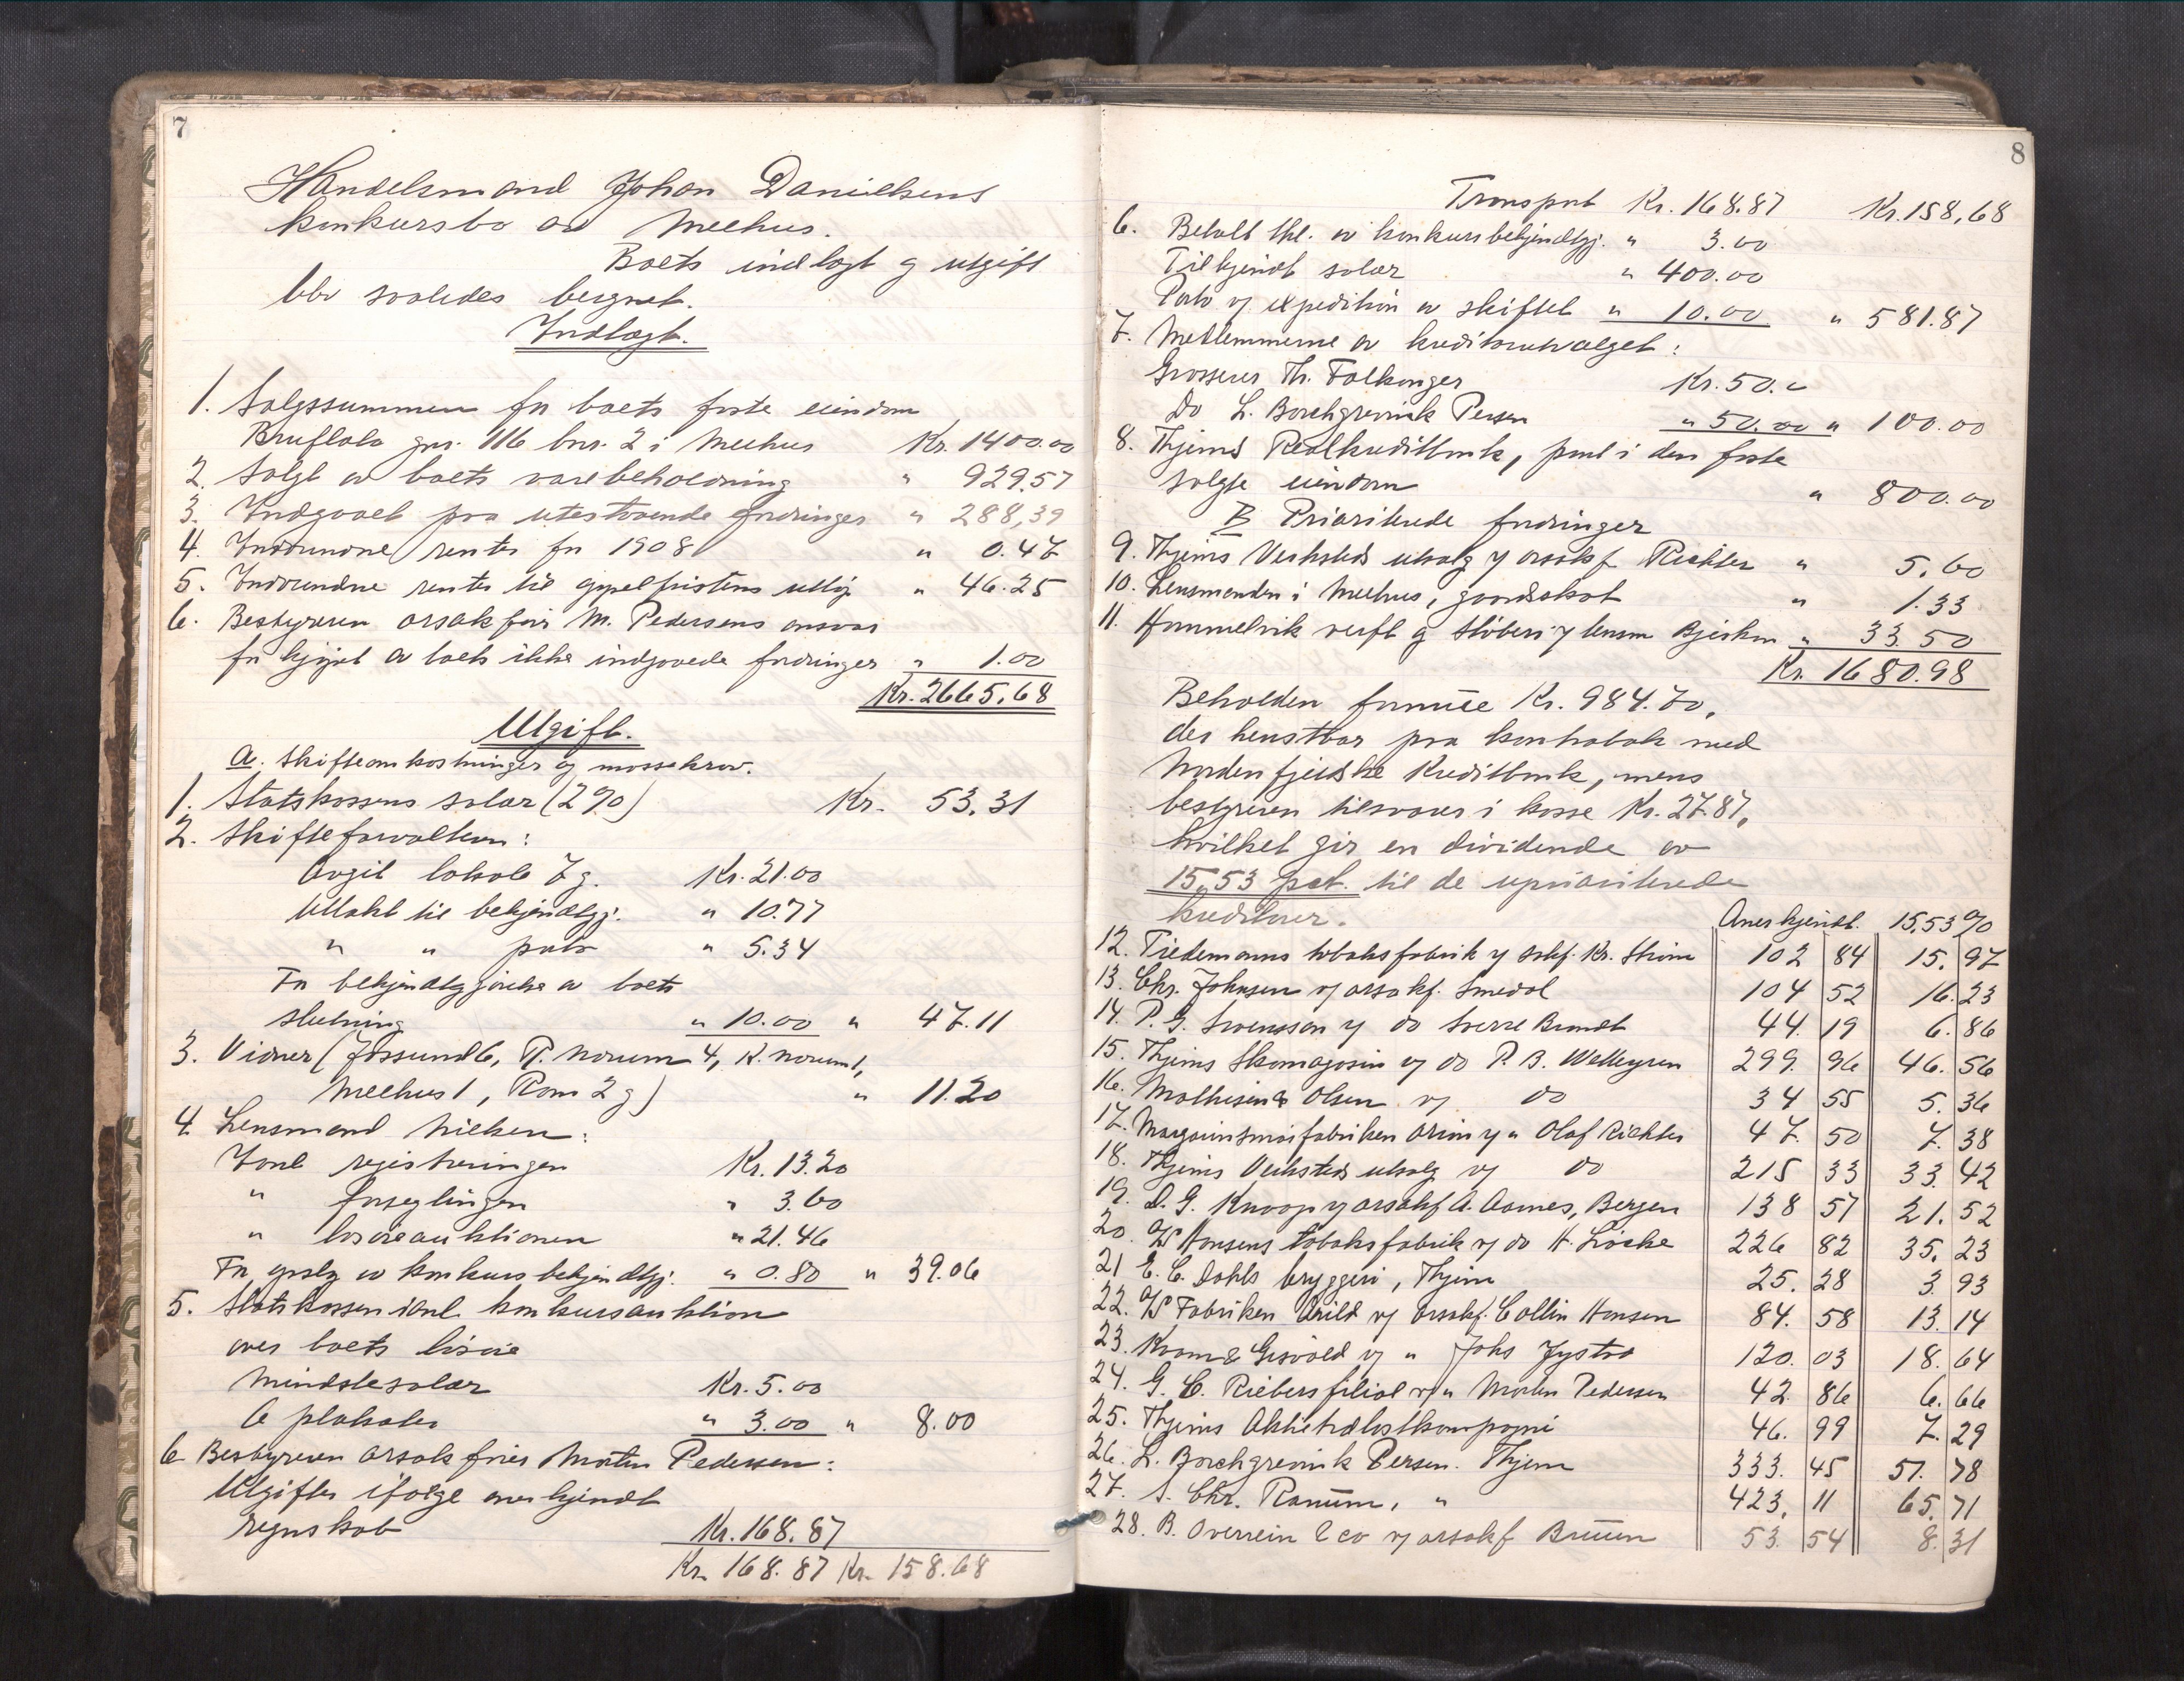 7
Handelsmand Johan Danielsens
konkursbo av Meehus.
Boets indtægt og utgift
blir saaledes beregnet.
Indtægt.
1. Salgssummen for boets faste eiendom
Bruflata gnr. 116 bnr. 2 i Meehus Kr. 1400.00
2. Salgt av boets varebeholdning " 929.57
3. Indgaaet paa utestaaende fordringer " 288,39
4. Indvundne renter for 1908 " 0.47
5. Indvundne renter til appelfristens utløp " 46.25
6. Bestyreren orsakfører M. Pedersens ansvar
for kjøpet av boets ikke indgaaede fordringer " 1.00
Kr. 2665.68
Utgift.
A. Skifteomkostninger og massekrav.
1. Statskassens salær (2%) Kr. 53.31
2. Skifteforvalteren:
Avgit lokale 7 g. Kr. 21.00
Utlakt til bekjendtgj. " 10.77
" " porto " 5.34
For bekjendtgjørelse av boets
slutning " 10.00 " 47.11
3. Vidner (Jøssund 6, P. Norum 4, K. Norum 1,
Meehus 1, Rom 2 g) " 11.20
4. Lensmand Nielsen:
Ianl registreringen Kr. 13.20
" forseglingen " 3.60
" løsøreauktionen " 21.46
For opslg av konkursbekjendtgj. " 0.80 " 39.06
5. Statskassen ianl. konkursauktion
over boets løsøre
Mindstesalær Kr. 5.00
6 plakater " 3.00 " 8.00
6 Bestyreren orsakfører Morten Pedersen:
Utgifter ifølge anerkjendt
regnskab Kr. 168.87
Kr. 168.87 Kr. 158.68
8
Transport Kr. 168.87 Kr. 158,68
6. Betalt tht. av konkursbekjendtgj. " 3.00
Tilkjendt salær " 400.00
Porto vj expedition av skiftet " 10.00 " 581.87
7. Medlemmerne av kreditorutvalget:
Grosserer Th. Falkanger Kr. 50."
Do L. Borchgrevink Persen " 50.00 " 100.00
8. Thjems Realkreditbank, pant i den faste
solgte eiendom " 800.00
B Prioriterede fordringer
9. Thjems Verksteds utsalg vj orsakf Richter " 5.60
10. Lensmanden i Meehus, gaardsskat " 1.33
11. Hommelvik verft og støberi vj lensm Bjerkan " 33.50
Kr. 1680.98
Beholden formue Kr. 984.70,
der henstaar paa kontrabok med
Nordenfjeldske Kreditbank, mens
bestyreren tilsvarer i kasse Kr. 27.87,
hvilket gir en dividende av
15,53 pct. til de uprioriterede
kreditorer. Anerkjendt. 15.53%
12. Tiedemanns tobaksfabrik vj sakf. Kr. Strøm 102 84 15. 97
13. Chr. Johnsen vj orsakf. Smedal 104 52 16. 23
14. P. G. Svensson vj do Sverre Brandt 44. 19 6. 86
15. Thjems Skomagasin vj do P. B. Wellegren 299. 96 46. 56
16. Mathisen & Olsen vj do 34 55 5. 36
17. Margarinsmørfabriken Orion vj " Olaf Richter 47. 50 7. 38
18. Thjems Verksteds utsalg vj do 215 33 33. 42
19. D. G. Knoop vj orsakf A. Aarnes, Bergen 138 57 21. 52
20. A/S Hansens tobaksfabrik vj do H. Løcke 226 82 35. 23
21 E. C. Dahls bryggeri, Thjem 25. 28 3. 93
22. A/S Fabriken Arild vj orsakf. Collin Hansen 84. 58 13. 14
23. Kvam & Gresvold vj " Johs Jystad 120. 03 18. 64
24. G. C. Riebers filial vj " Morten Pedersen 42. 86 6. 66
25. Thjems Aktietrælastkompagni 46. 99 7. 29
26. L. Borchgrevink Persen. Thjem 333. 45 51. 78
27. S. Chr. Ranum, " 423, 11 65, 71
28. B. Overrein & co vj orsakf Bruun 53. 54 8. 31